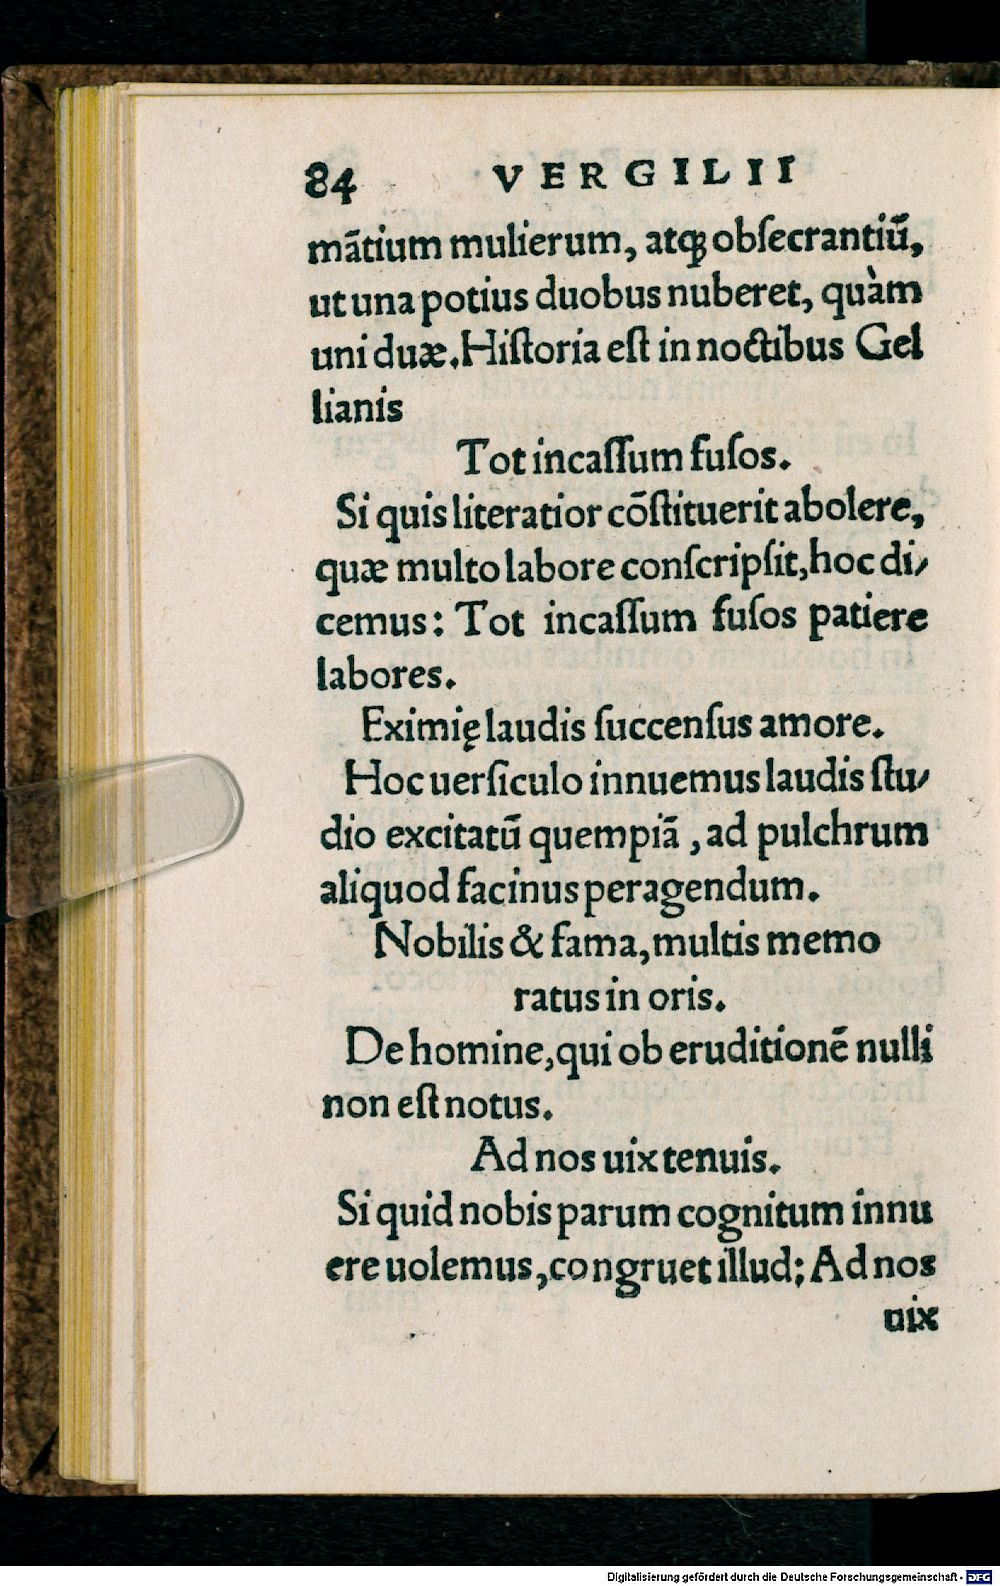 84 VERGILII
mãtium mulierum, atqꝫ obſecrantiũ,
ut una potius duobus nuberet, quàm
uni duæ. Hiſtoria eſt in noctibus Gel
lianis
Tot incaſſum fuſos.
Si quis literatior cõſtituerit abolere,
quæ multo labore conſcripſit, hoc di/
cemus: Tot incaſſum fuſos patiere
labores.
Eximię laudis ſuccenſus amore.
Hoc uerſiculo innuemus laudis ſtu/
dio excitatũ quempiã, ad pulchrum
aliquod facinus peragendum.
Nobilis & fama, multis memo
ratus in oris.
De homine, qui ob eruditionẽ nulli
non eſt notus.
Ad nos uix tenuis.
Si quid nobis parum cognitum innu
ere uolemus, congruet illud; Ad nos
uix
Digitalisierung gefördert durch die Deutsche Forschungsgemeinschaft - DFG